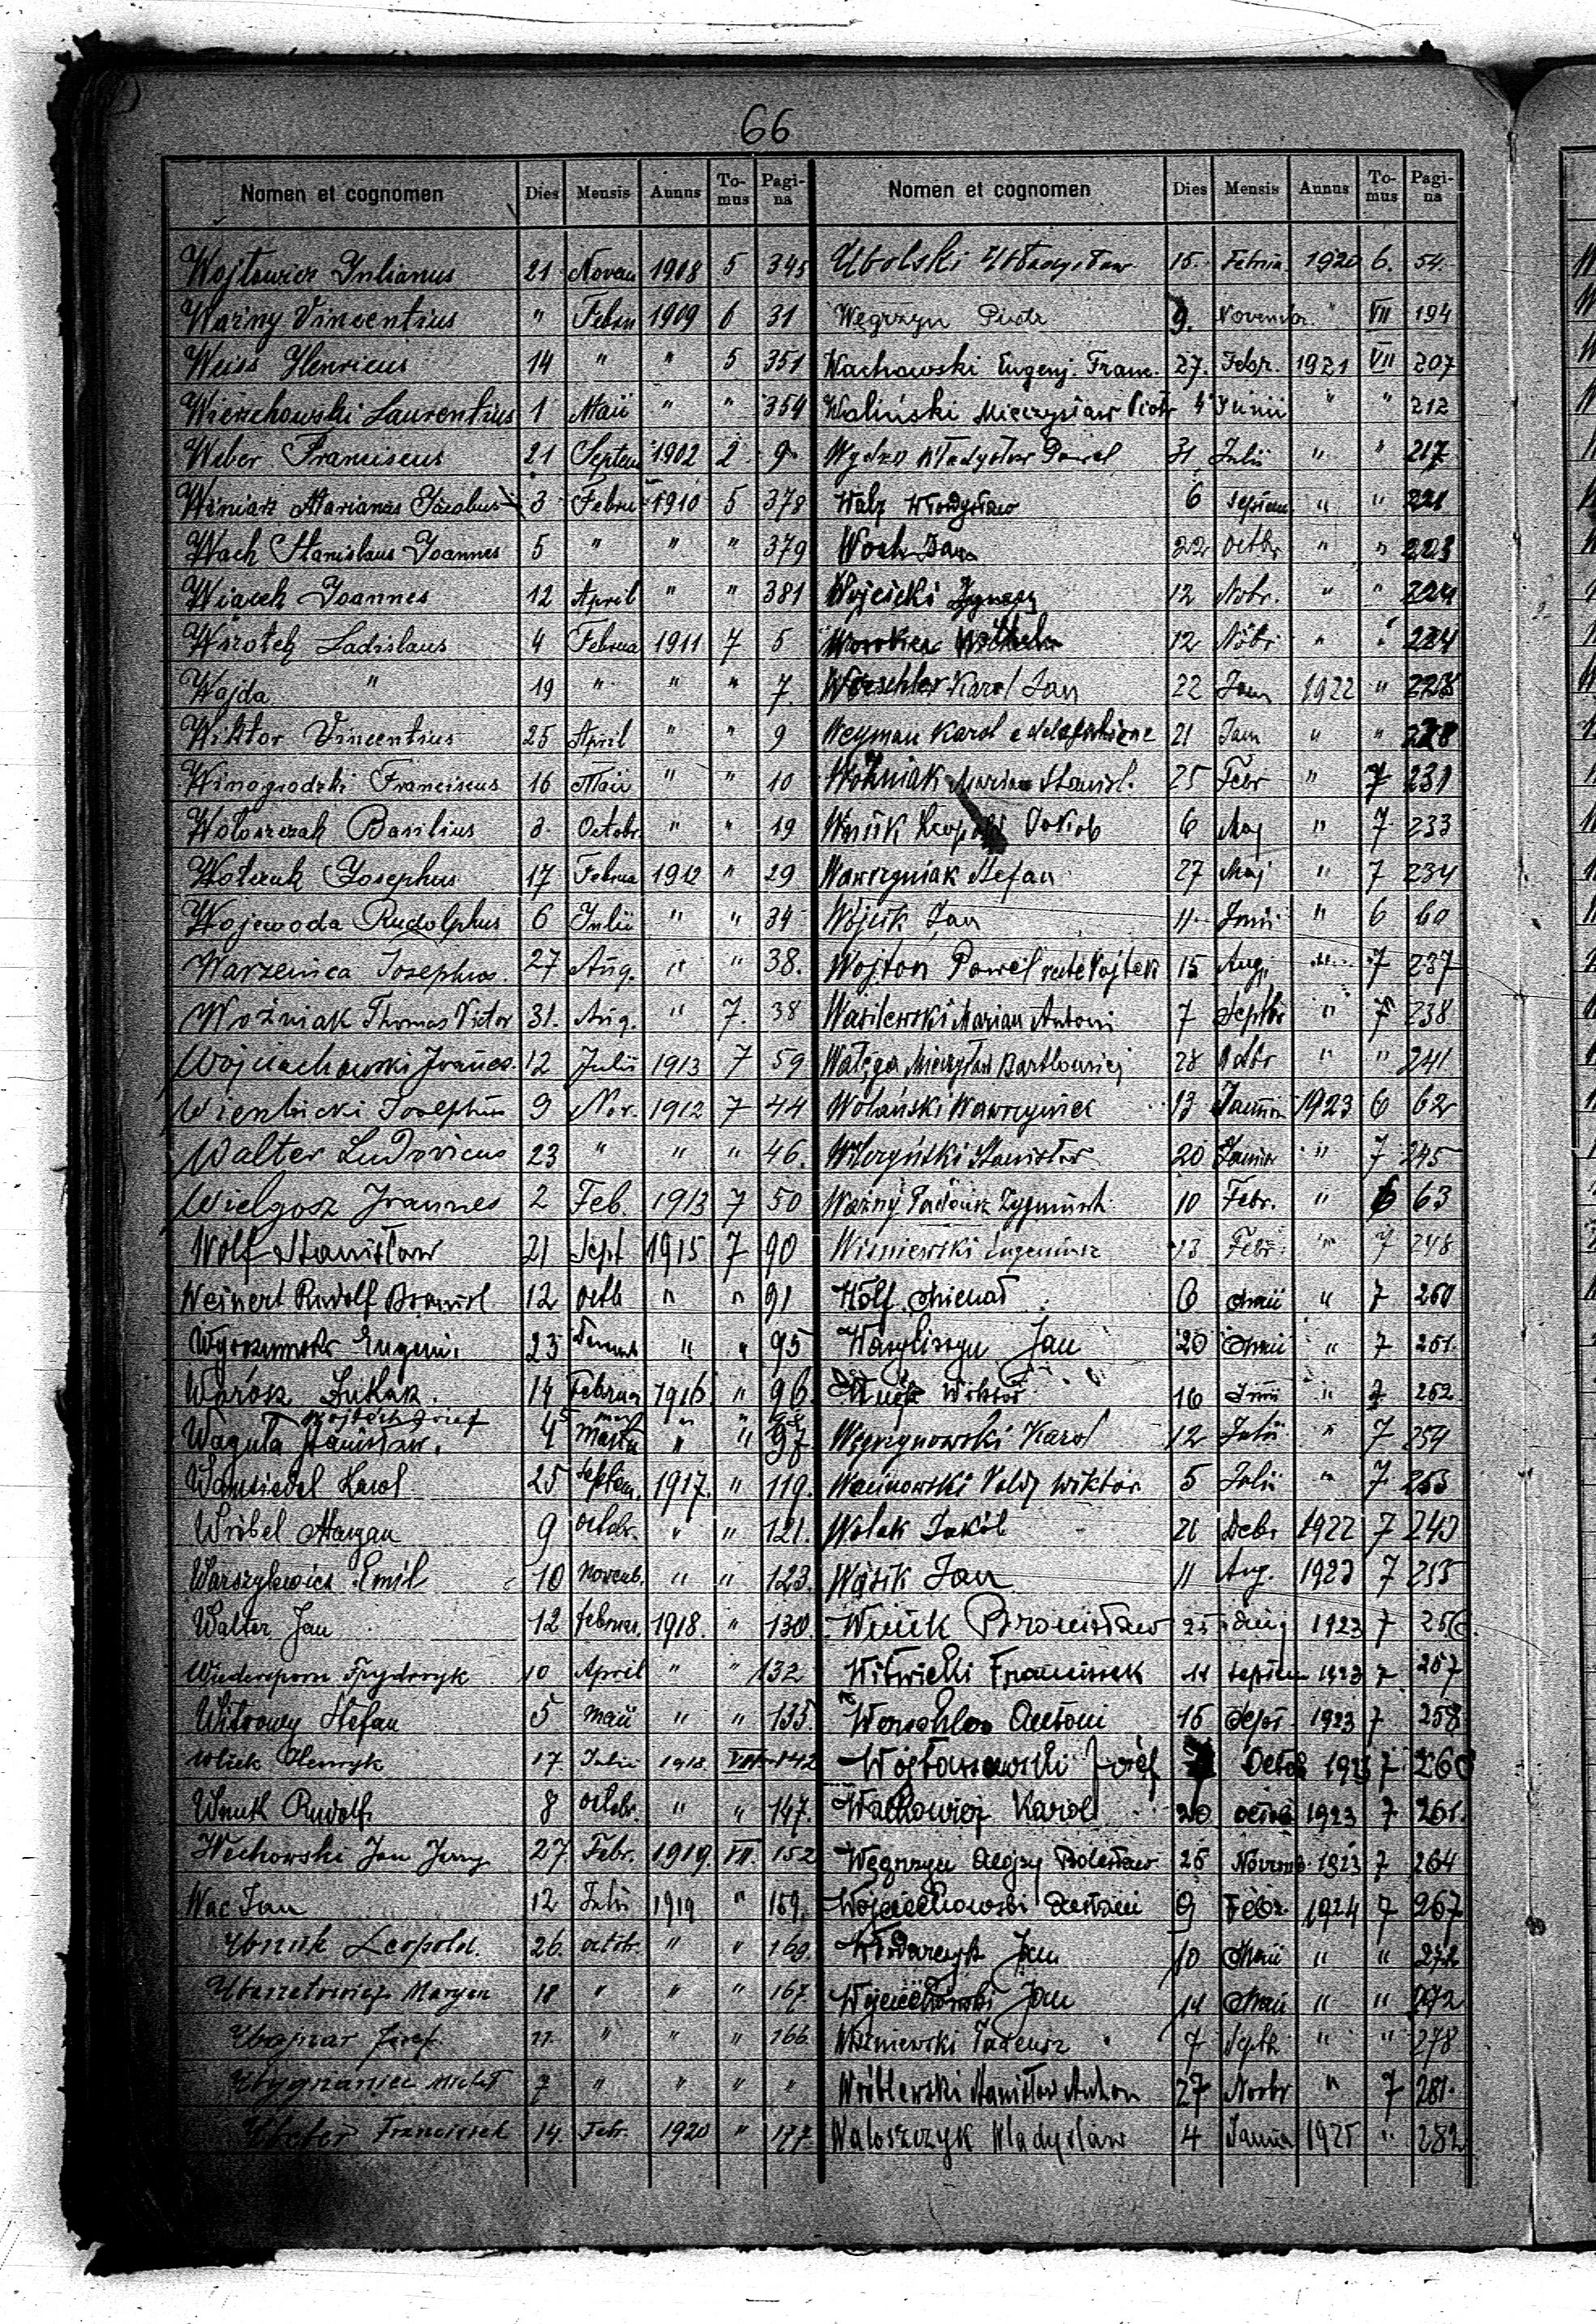 66
Nomen et cognomen Dies Mensis Annus To-mus Pagi-na
Wojtowicz Julianus 21 Novem 1908 5 345
Ważny Vincentius " Febru 1909 6 31
Weiss Henricus 14 " " 5 351
Wierzchowski Laurentius 1 Maii " " 354
Weber Franciscus 21 Septem 1902 2 9
Winiarz Marianus Jacobus 3 Febru 1910 5 378
Wach Stanislaus Joannes 5 " " " 379
Wiącek Joannes 12 April " " 381
Ladislaus 4 Februa 1911 7 5
Wajda " 19 " " " 7
Wiktor Vincentius 25 April " " 9
Winogrodzki Franciscus 16 Maii " " 10
Wołoszczak Basilius 3 Octobr " " 19
Josephus 17 Februa 1912 " 29
Wojewoda Rudolphus 6 Julii " " 34
Warzenica Josephus. 27 Aug. " " 38.
Woźniak Thomas Victor 31. Aug. " 7. 38
Wojciechowski 12 Julii 1913 7 59
Josephus 9 Nov. 1912 7 44
Walter Ludovicus 23 " " " 46.
Wielgosz Joannes 2 Feb. 1913 7 50
Wolf Stanisław 21 Sept 1915 7 90
Weinert Rudolf 12 octb " " 91
Eugeni 23 " " 95
14 Februar 1916 " 96
Wojtach Józef 5 " "
Waguła Stanisław. 4 " " 97
Karol 25 Septem. 1917. " 119.
Wróbel Maryan 9 octobr. " " 121.
Warszylewicz Emil 10 Novemb. " " 123.
Walter Jan 12 februar. 1918. " 130.
Fryderyk 10 April " " 132
Witrowy Stefan 5 Maii " " 135.
Henryk 17 Julii 1918 VII 142
Wnuk Rudolf 8 octobr. " " 147.
Wechowski Jan Jerzy 27 Febr. 1919. VII. 152
Wac Jan 12 Julii 1919 " 159.
Wnuk Leopold. 26. octobr. " " 163.
Maryan 18 " " " 167
Wojnar Józef " " " 166
Wygnaniec Michał 7 " " " "
Weber Franciszek 14. Febr. 1920 " 177.
Nomen et cognomen Dies Mensis Annus To-mus Pagi-na
Wolski Władysław 15. Februa 1920 6. 54.
Węgrzyn Piotr 9. Novembr. " VII 194
Wachowski Eugenj. Franc. 27. Febr. 1921 VII 207
Waliński Mieczysław Piotr 4 Junii " " 212
Władysław Paweł 31 Julii " " 217
Władysław 6 Septem " " 221
Woch Jan 22 Octbr " " 223
Wojcicki Ignacy 12 Nobr. " " 224
12 Nobr. " " 224
Karol Jan 22 Jan 1922 "
Weyman Karol 21 Jan " " 228
Woźniak Marian Stanisł. 25 Febr " 7 231
Wnuk Leopold Jakob 6 Maj " 7 233
Wawrzyniak Stefan 27 Maj " 7 234
Wójcik Jan 11 Junii " 6 60
Wojton Paweł recte Wojtek 15 Aug. " 7 237
Wasilewski Marian Antoni 7 Septbr " 7 238
Wałęga Mieczysław Bartłomiej 28 Octbr " " 241
Wolański Wawrzyniec 13 Januar 1923 6 62
Wilczyński Stanisław 20 Januar " 7 245
Ważny Tadeusz Zygmunt 10 Febr. " 6 63
Wiśniewski Eugeniusz 13 Febr. " 7 248
Wolf Michał 6 Maii " 7 250
Wasyliszyn Jan 20 Maii " 7 251.
Wnęk Wiktor 16 Junii " 7 252
Węgrzynowski Karol 12 Julii " 7 254
Wiktor 5 Julii " 7 253
Wolak Jakób 21 Debr 1922 7 243
Wąsik Jan 11 Aug. 1923 7 255
Wnuk Bronisław 25 1923 7 256.
Witwicki Franciszek 11 Septem 1923 7 257
Antoni 16 Sept 1923 7 258
Józef Octob 1923 7 260
Walkowicz Karol 20 octob 1923 7 261.
Węgrzyn Alojzy Bolesław 25 Novemb 1923 7 264
Wojciechowski Antoni 9 Febr. 1924 7 267
Włodarczyk Jan 10 Maii " " 272
Wojciechowski Jan 14 Maii " " 272
Wiśniewski Tadeusz 7 Septb " " 278
Wróblewski Stanisław Anton 27 Novbr " 7 281.
Waloszczyk Władysław 4 Janua 1925 " 282